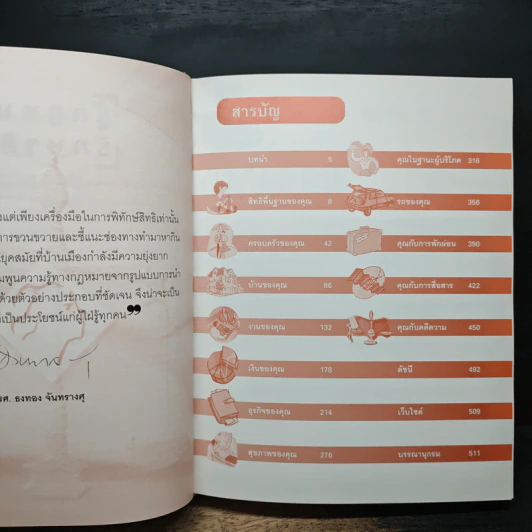 งแต่เพียงเครื่องมือในการพิทักษ์สิทธิเท่านั้น
การขวนขวายและชี้แนะช่องทางทำมาหากิน
ยุคสมัยที่บ้านเมืองกำลังมีความยุ่งยาก
มพูนความรู้ทางกฎหมายจากรูปแบบการนำ
ด้วยตัวอย่างประกอบที่ชัดเจน จึงน่าจะเป็น
เป็นประโยชน์แก่ผู้ใฝ่รู้ทุกคน”
รศ. ธงทอง จันทรางศุ
สารบัญ
บทนำ 5
สิทธิพื้นฐานของคุณ 8
ครอบครัวของคุณ 42
บ้านของคุณ 86
งานของคุณ 132
เงินของคุณ 178
ธุรกิจของคุณ 214
สุขภาพของคุณ 276
คุณในฐานะผู้บริโภค 316
รถของคุณ 356
คุณกับการพักผ่อน 390
คุณกับการสื่อสาร 422
คุณกับคดีความ 450
ดัชนี 492
เว็บไซต์ 509
บรรณานุกรม 511